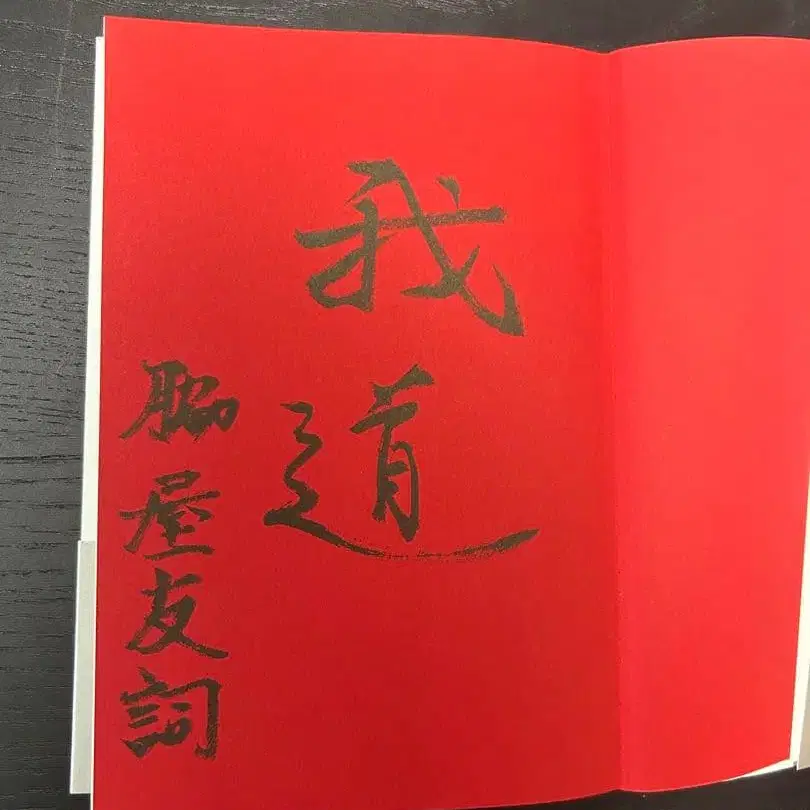 我道
脇屋友詞